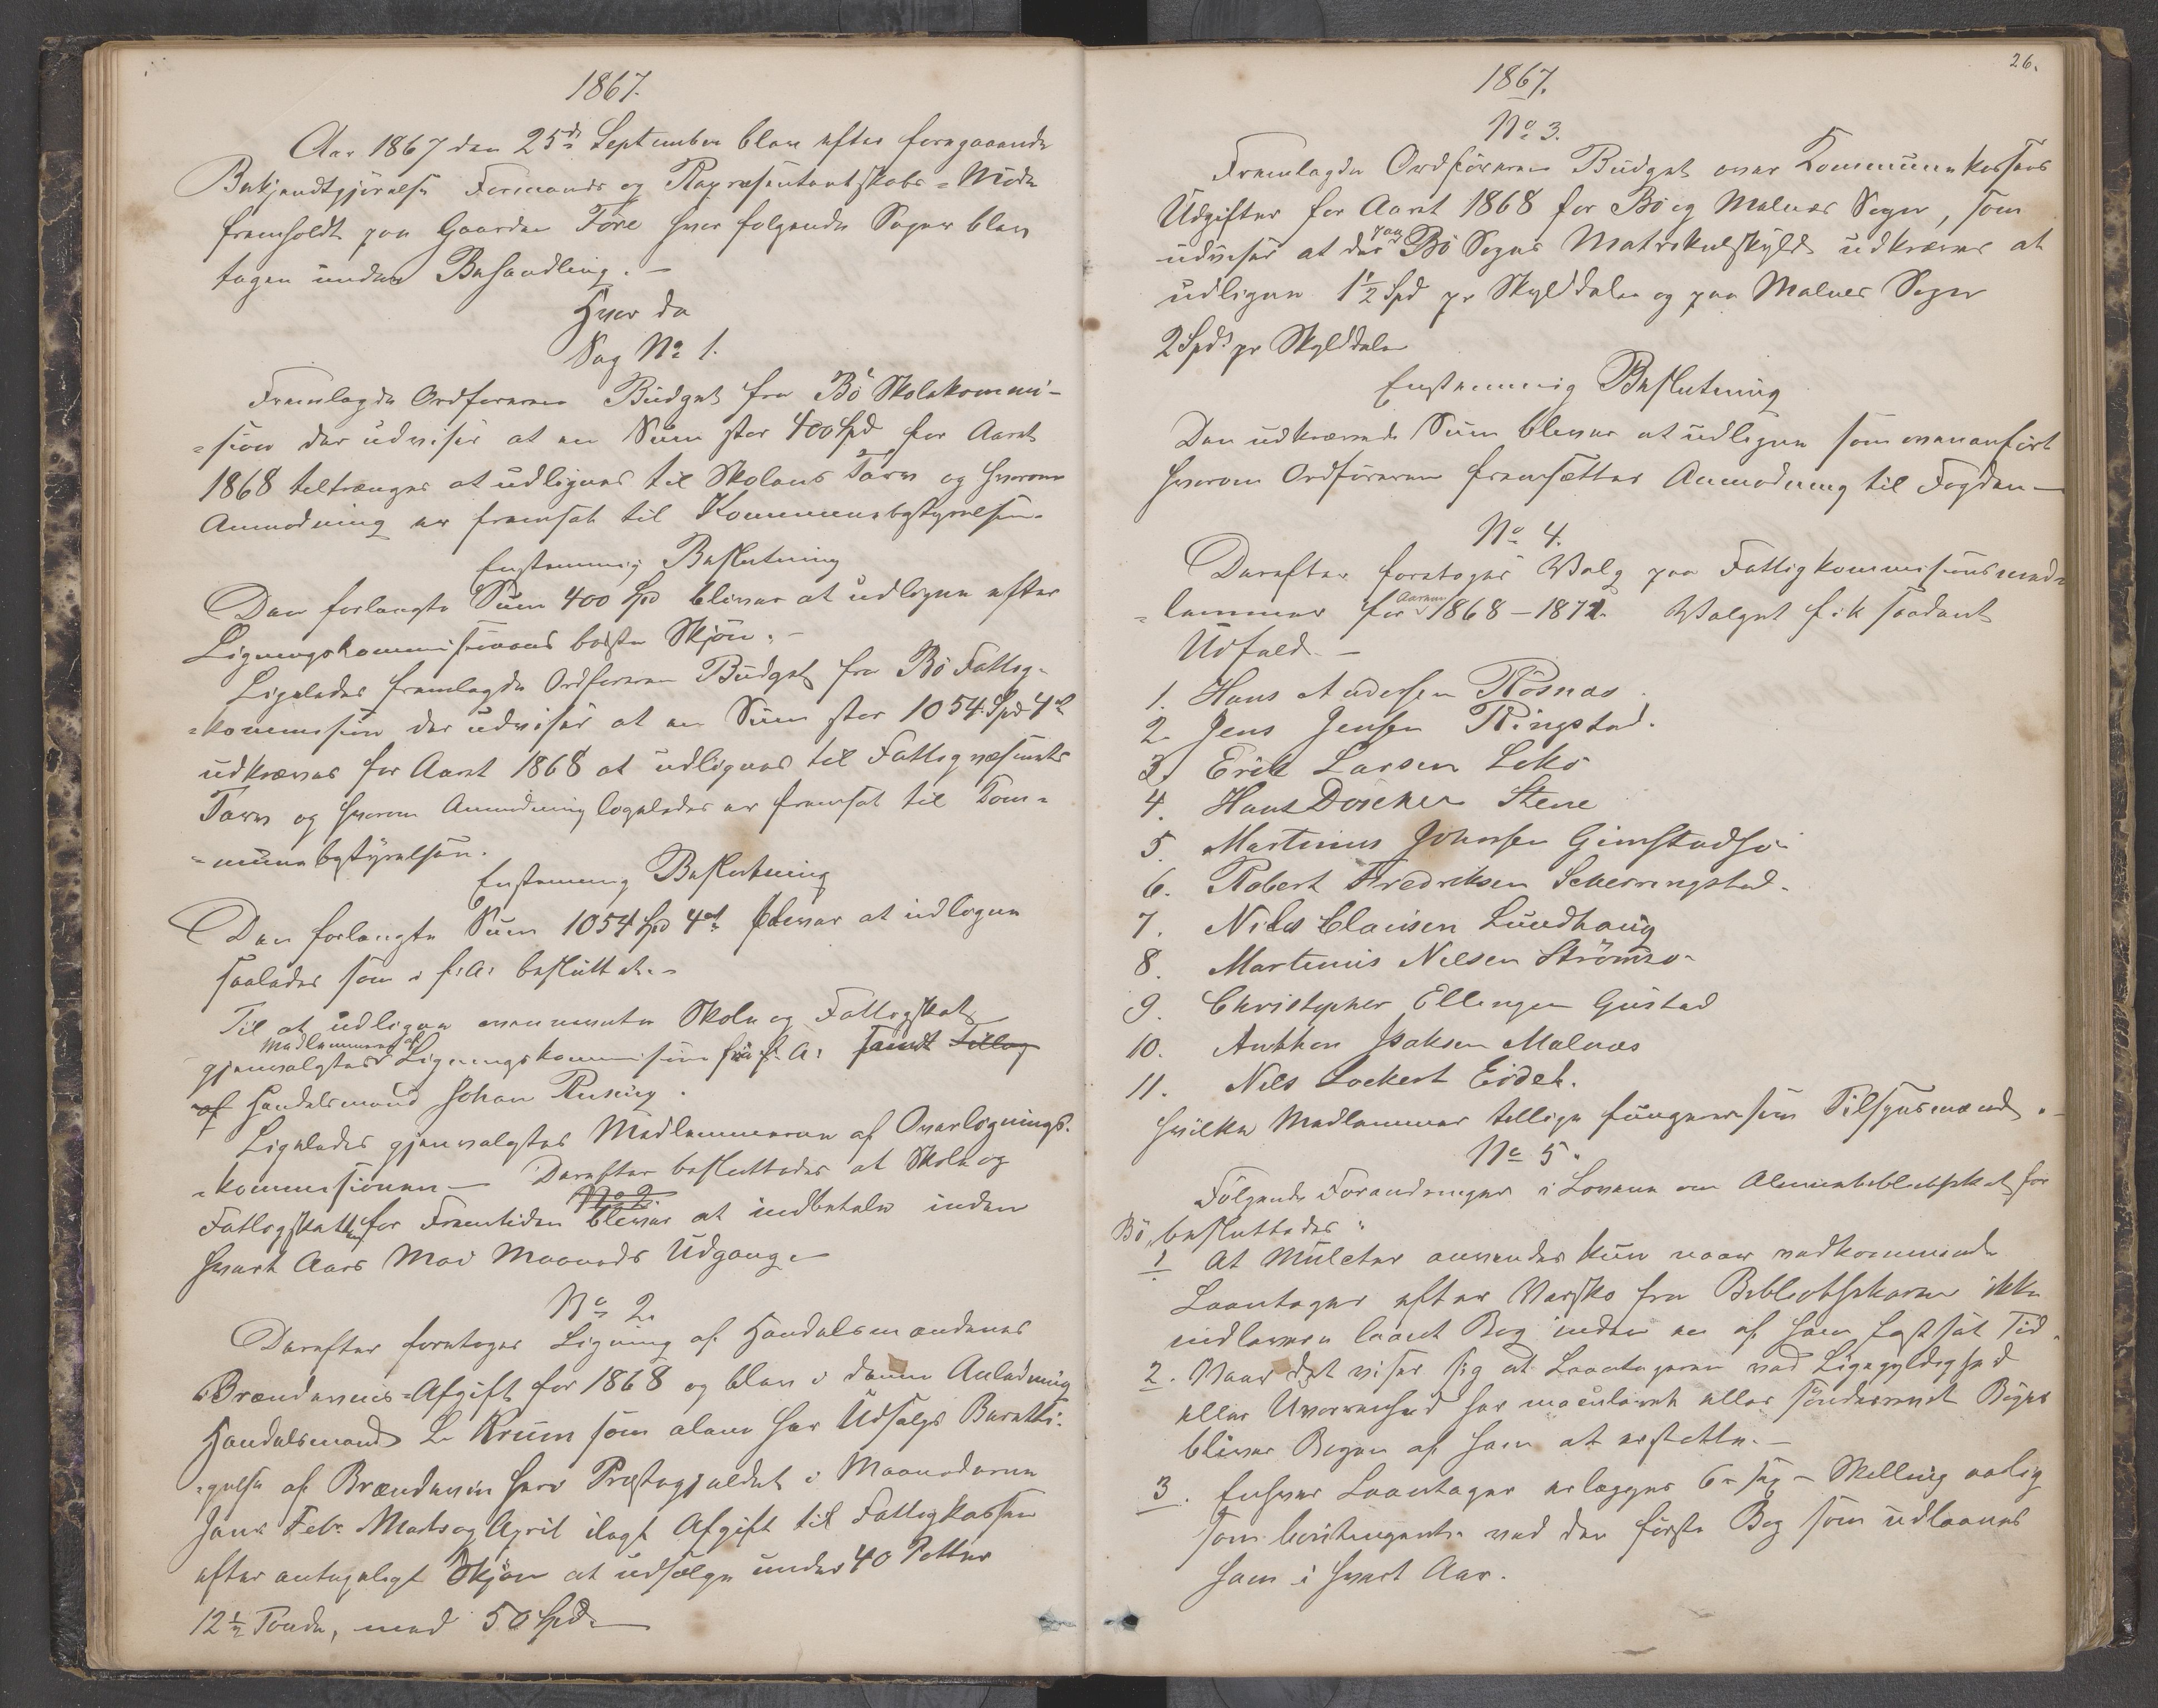 1867.
Aar 1867 den 25de September blev efter foregaaende
Bekjendtgjörelse Formands og Repræsentantskabs-Möde
fremholdt paa Gaarden Före hvor følgende Sager blev
tagen under Behandling. –
Hvor da
Sag No 1.
Fremlagde Ordføreren Budget fra Bö Skolekommi-
-sion der udviser at en Sum stor 400 Spd for Aaret
1868 tiltrænges at udlignes til Skolens Tarv og hvorom
Anmodning er fremsat til Kommunebestyrelsen.
Enstemmig Beslutning
Den forlangte Sum 400 Spd bliver at udligne efter
Ligningskommisionens bedste Skjön. –
Ligeledes fremlagde Ordføreren Budget fra Bö Fattig-
-kommision der udviser at en Sum stor 1054 Spd 4 ort
udkræves for Aaret 1868 at udlignes til Fattigvæsenets
Tarv og hvorom Anmodning ligeledes er fremsat til Kom-
-munebestyrelsen.
Enstemmig Beslutning
Den forlangte Sum 1054 Spd 4 ort bliver at udligne
saaledes som i f: A: besluttet. –
Til at udligne ovennævnte Skole og Fattigskat
Medlemmerne af
gjenvalgtes Ligningskommisionen fra f. A: samt Tillæg
af Handelsmand Johan Rusing.
Ligeledes gjenvalgtes Medlemmerne af Overlignings-
-kommisionen – Derefter besluttedes at Skole og
No 2
Fattigskatten for Fremtiden bliver at indbetale inden
hvert Aars Mai Maaneds Udgang. –
No 2.
Derefter foretoges Ligning af Handelsmændenes
Brændevins-Afgift for 1868 og blev i denne Anledning
Handelsmand L. Krum som alene har Udsalgs Beretti-
-gelse af Brændeviin her i Præstegjeldet i Maanederne
Janr Febr Marts og April ilagt Afgift til Fattigkassen
efter antageligt Skjön at udsælge under 40 Potter
12 1/2 Tönde, med 50 Spd. –
26.
1867.
No 3.
Fremlagde Ordföreren Budget over Kommunekassens
Udgifter for Aaret 1868 for Bö og Malnes Sogn, som
paa
udviser at der Bö Sogns Matrikulskyld udkræves at
udligne 1 1/2 Spd pr Skylddaler og paa Malnes Sogn
2 Spd pr Skylddaler
Enstemmig Beslutning
Den udkrævede Sum bliver at udligne som ovenanfört
hvorom Ordföreren fremsætter Anmodning til Fogden –
No 4.
Derefter foretoges Valg paa Fattigkommisionsmed-
Aarene
-lemmer for 1868 – 1871. Valget fik saadant
Udfald. –
1. Hans Andersen Røsnæs.
2. Jens Jensen Ringstad.
3. Erik Larsen Lekö
4. Hans Döscher Stene
5. Martinus Johnsen Gimstadsö
6. Robert Fredriksen Scherringstad.
7. Nils Clausen Lundhaug
8. Martinus Nilsen Strömsö.
9. Christopher Ellingsen Gustad
10. Anthon Isaksen Malnæs
11. Nils Lockert Eidet.
hvilke Medlemmer tillige fungerer som Tilsynsmænd. –
No 5.
Fölgende Forandringer i Lovene om Almuebibliotheket for
Bö, besluttedes:
1 At Mulcter anvendes kun naar vedkommende
Laantager efter Varsko fra Bibliothekaren ikke
indleverer laant Bog inden en af ham fastsat Tid.
2. Naar det viser sig at Laantageren ved Ligegyldighed
eller Uvorrenhed har maculeret eller sönderrevet Boger
bliver Bogen af ham at erstatte. –
3. Enhver Laantager erlægger 6 – sex – Skilling aarlig
som Contingent ved den förste Bog som udlaanes
ham i hvert Aar.